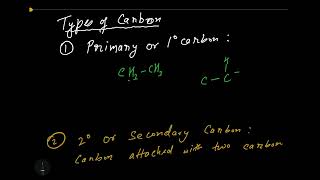 Types of Carbon
① Primary or 1° carbon :
CH3 – CH3
H
C – C –
② 2° or Secondary Carbon :
Carbon attached with two carbon